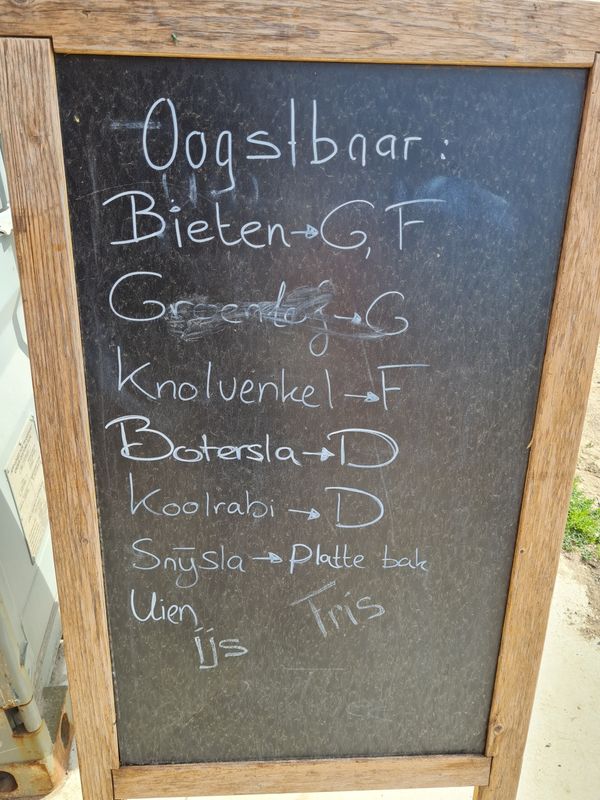 Oogstbaar:
Bieten → G, F
→ G
Knolvenkel → F
Botersla → D
Koolrabi → D
Snijsla → Platte bak
Uien
Tris
ijs